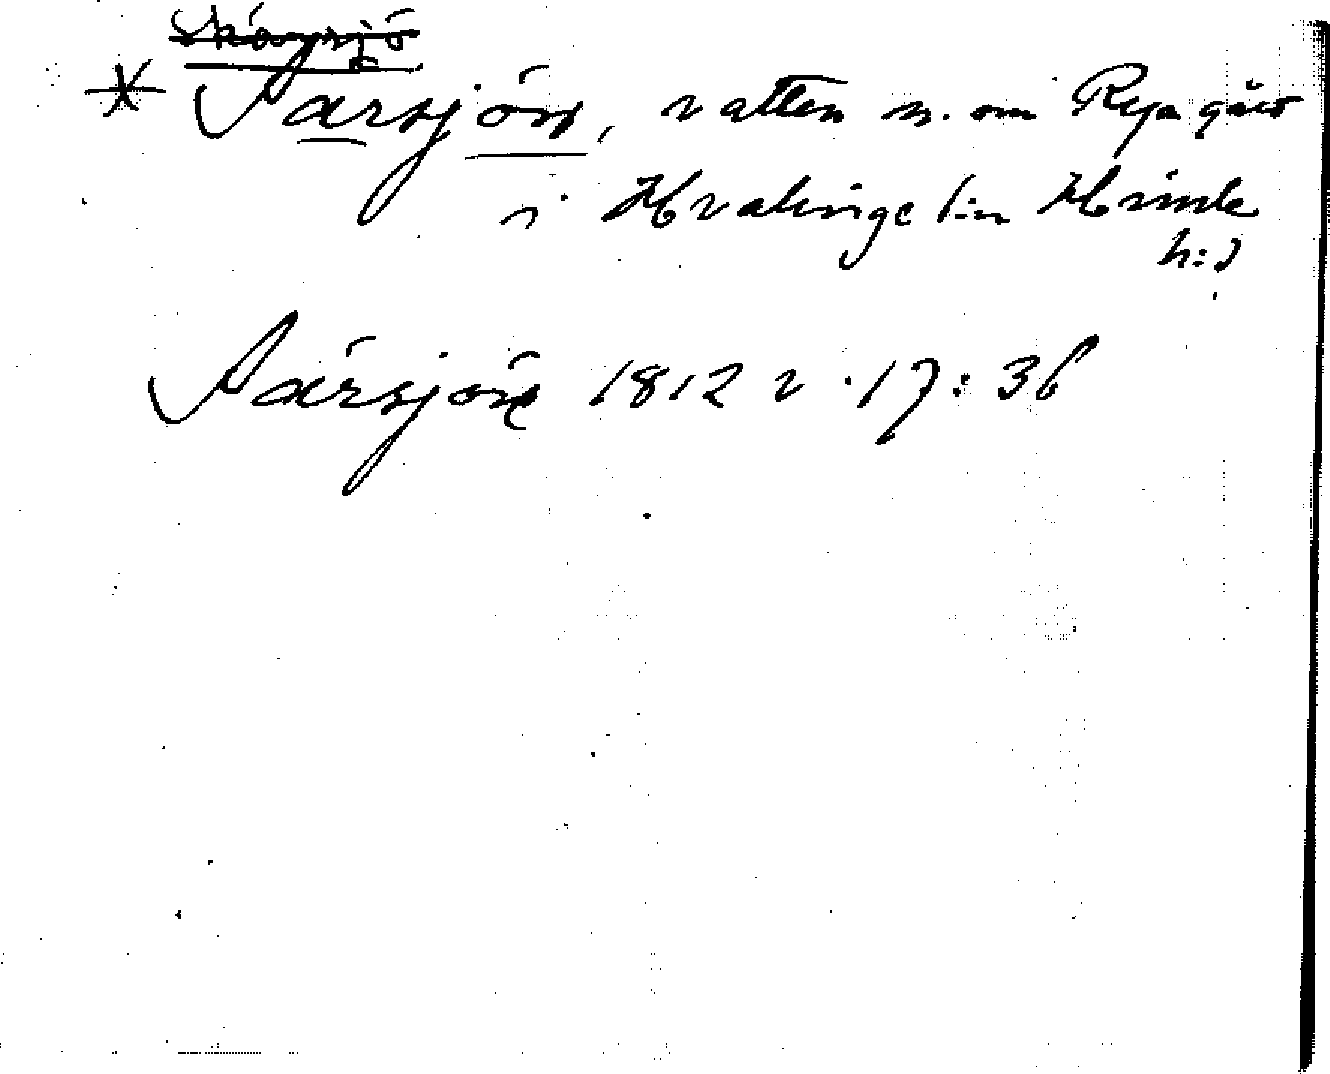 * Sarsjön, vatten n. om Rya gård
i Hvalinge s:n Himle
h:d
Sársjöe 1812 v. 17:36